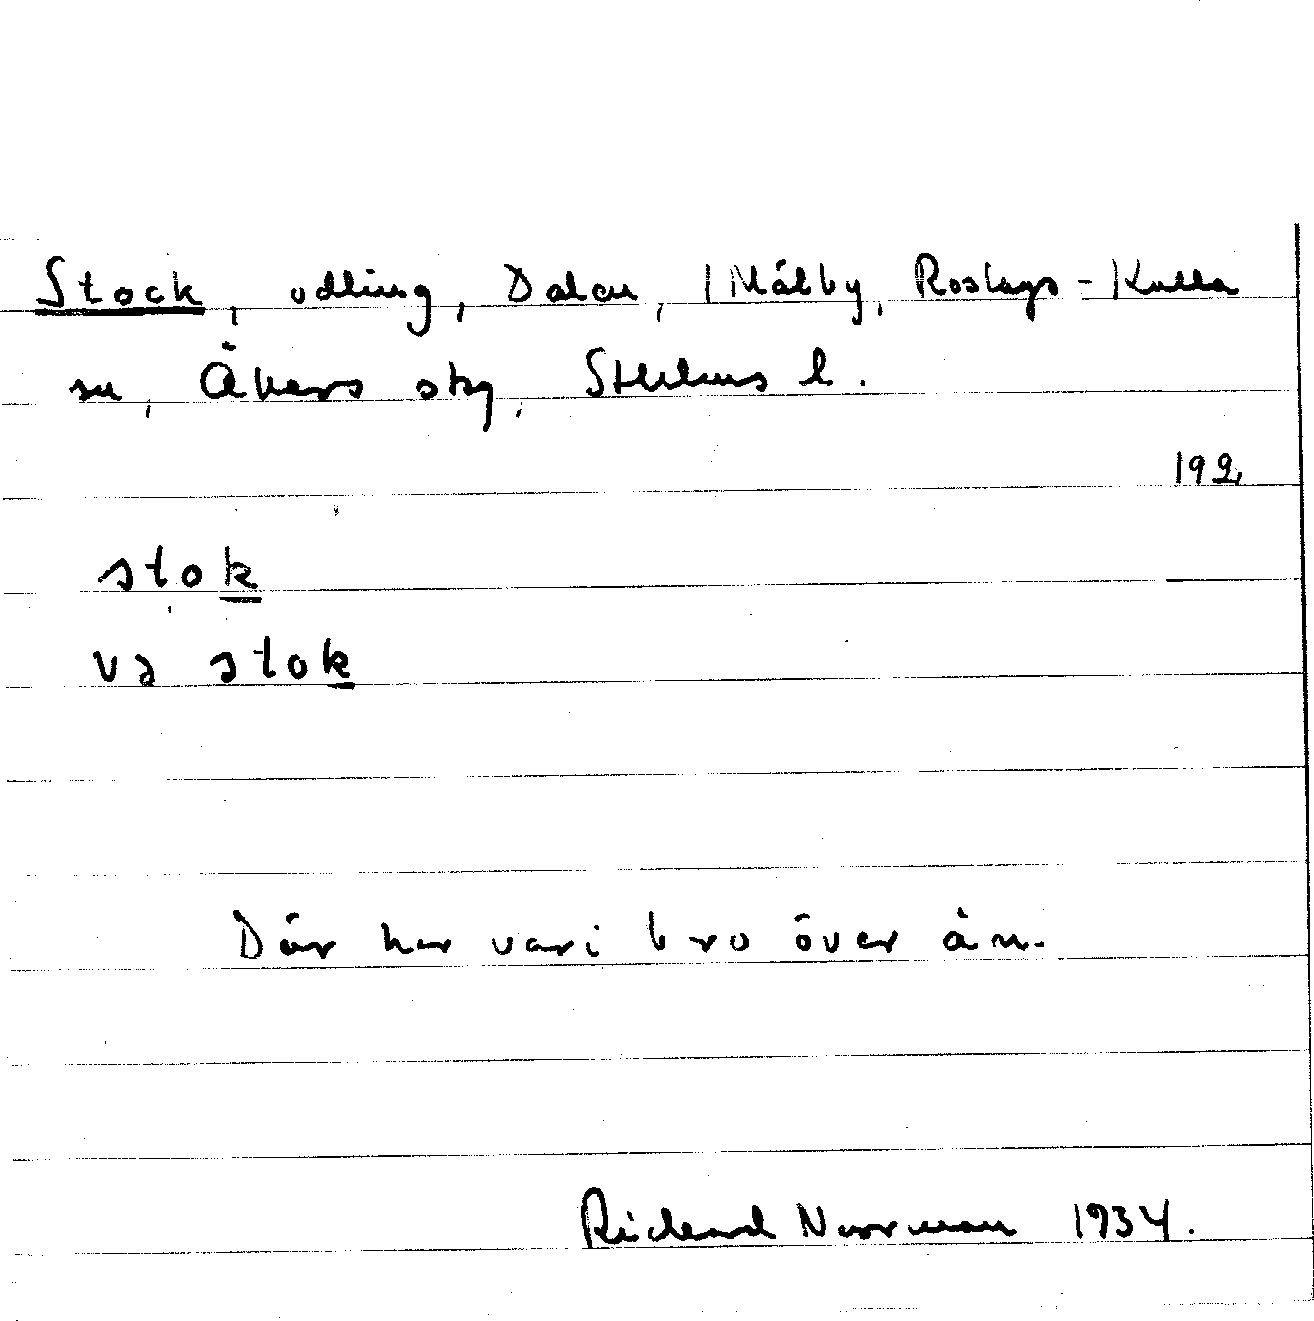 Stock, odling, Dalen, Målby, Roslags-Kulla
sn, Åkers skg, Sthlms l.
192,
stok
va stok
Där har vari bro över ån.
Richard Norrman 1934.